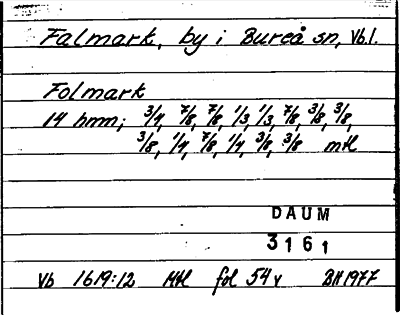 Falmark, by i Bureå sn, Vb.l.
Folmark
14 hmn; 3/4, 7/8, 7/8, 1/3, 1/3, 7/8, 3/8, 3/8,
3/8, 1/4, 7/8, 1/4, 3/8, 3/8 mtl
DAUM
3161
Vb 1619:12 Mtl fol 54v BH 1977